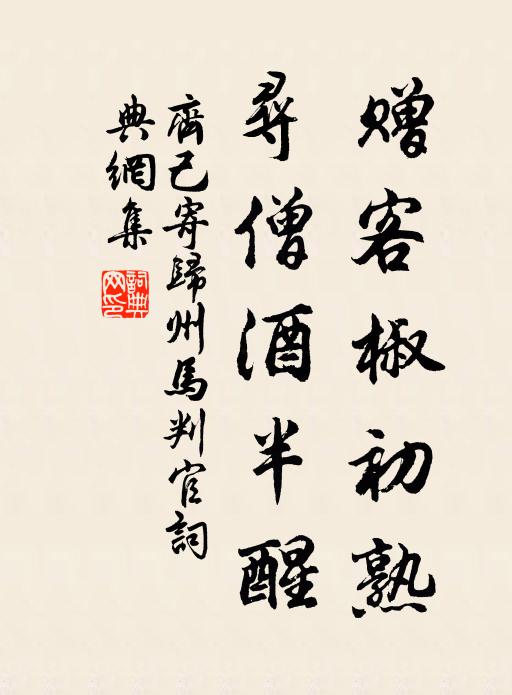 赠客椒初熟
尋僧酒半醒
齊己寄歸州馬判官詞
典網集
詞典网印